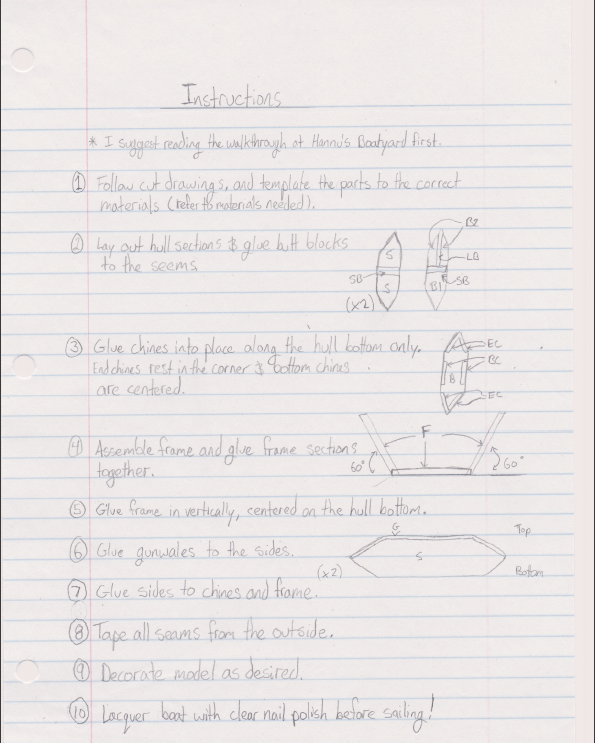 Instructions
* I suggest reading the walkthrough at Hannu's Boatyard first.
① Follow cut drawings, and template the parts to the correct
materials (refer to materials needed).
② Lay out hull sections & glue butt blocks
to the seems.
S
SB
S
(x2)
B2
LB
SB
B1
③ Glue chines into place along the hull bottom only.
End chines rest in the corner & bottom chines
are centered.
EC
BC
B
EC
④ Assemble frame and glue frame sections
together.
F
60°
60°
⑤ Glue frame in vertically, centered on the hull bottom.
⑥ Glue gunwales to the sides.
G
Top
S
(x2)
Bottom
⑦ Glue sides to chines and frame.
⑧ Tape all seams from the outside.
⑨ Decorate model as desired.
⑩ Lacquer boat with clear nail polish before sailing!